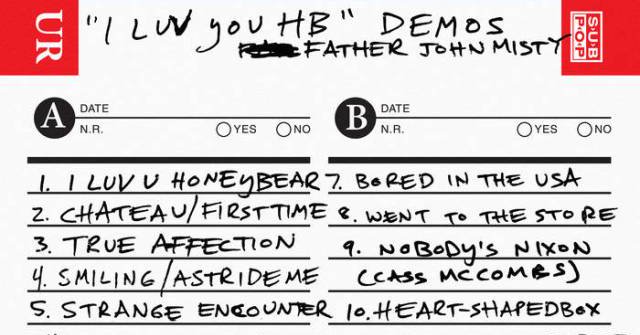 UR
"I LUV YOU HB" DEMOS
FATHER JOHN MISTY
SUB
POP
A
DATE
N.R.
YES
NO
B
DATE
N.R.
YES
NO
1. I LUV U HONEYBEAR
2. CHATEAU/FIRST TIME
3. TRUE AFFECTION
4. SMILING/ASTRIDE ME
5. STRANGE ENCOUNTER
7. BORED IN THE USA
8. WENT TO THE STORE
9. NOBODY'S NIXON
(CASS MCCOMBS)
10. HEART-SHAPED BOX